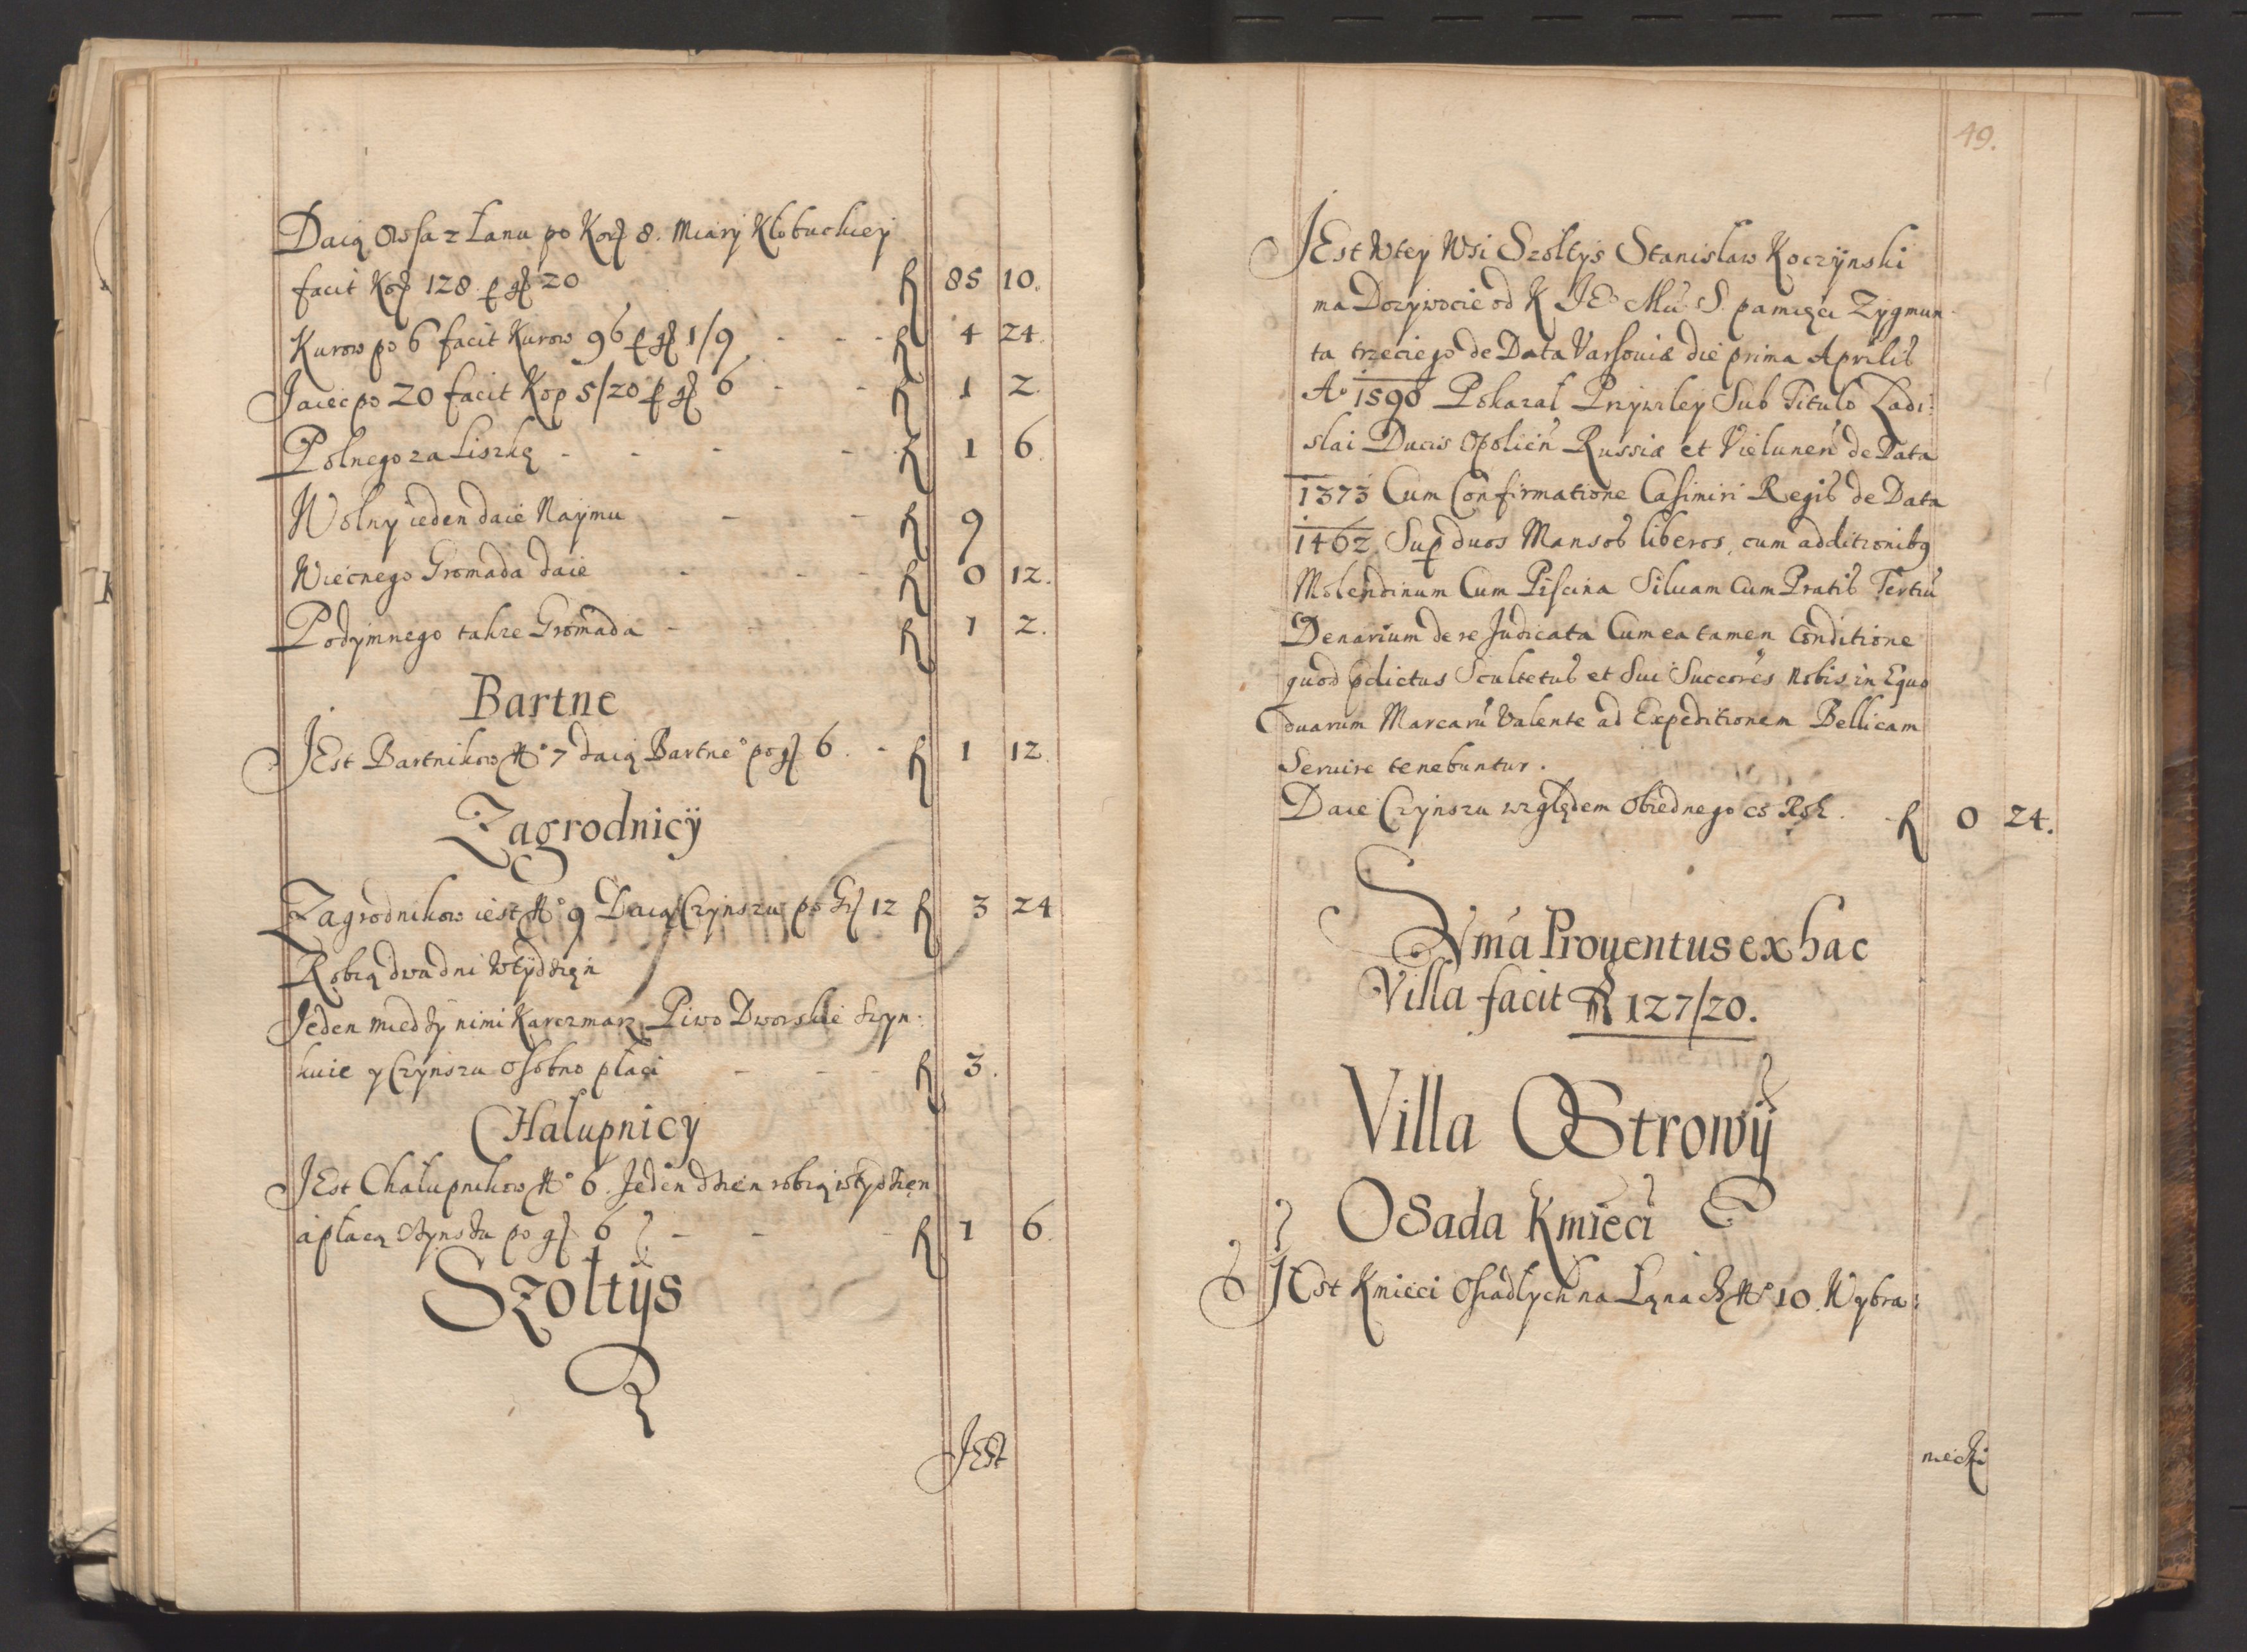 Daią Owsa z Łanu po Kor 8. Miary Kłobuckiey
facit Kor 128. p gr 20 f 85 10.
Kurow po 6 facit Kurow 96 p gr 1/9 - - - f 4 24.
Jaiec po 20 facit Kop 5/20 p gr 6 - - f 1 2.
Polnego za Liszkę - - - - f 1 6.
Wolny ieden daie Naymu - - f 9
Wiecnego Gromada daie - - - f 0 12.
Podymnego takze Gromada - - f 1 2.
Bartne
JEst Bartnikow No 7 daią Bartne° po gr 6. - f 1 12.
Zagrodnicÿ
Zagrodnikow iest No 9 Daią Czynszu po Gr 12 f 3 24
Robią dwa dni w tydzięń
Jeden miedzy nimi Karczmarz Piwo Dworskie szyn:
kuie y Czynszu osobno płaci - - - f 3.
CHałupnicy
JEst Chałupnikow No 6. Jeden dzien robią w tydzien
a płacą Czynszu po gr 6 - - - f 1 6.
Szołtÿs
JEst
49.
JEst w tey Wsi Szoltys Stanisław Koczÿnski
ma Dozywocie od K JE Mci S. pamięci Zygmun
ta trzeciego de Data Varsouiæ die prima Aprilis
A° 1598 Pokazał Przywiley Sub Titulo Ladi:
slai Ducis Opolień Russiæ et Vieluneń de Data
1373 Cum Confirmatione Casimiri Regis de Data
1462. Sup duos Mansos liberos, cum additionibq
Molendinum Cum Piscina Siluam cum Pratis Tertiū
Denarium de re Judicata Cum ea tamen Conditione
quod pdictus Scultetus et Sui Succores Nobis in Equo
duarum Marcarū Valente ad Expeditionem Bellicam
Seruire tenebuntur.
Daie Czynszu względem Obiednego co Rok. - f 0 24.
Suma Prouentus ex hac
Villa facit f 127/20.
Villa OStrowÿ
OSada Kmieci
JEst Kmieci Osiadłych na Łanach No 10. Wybra:
niecki